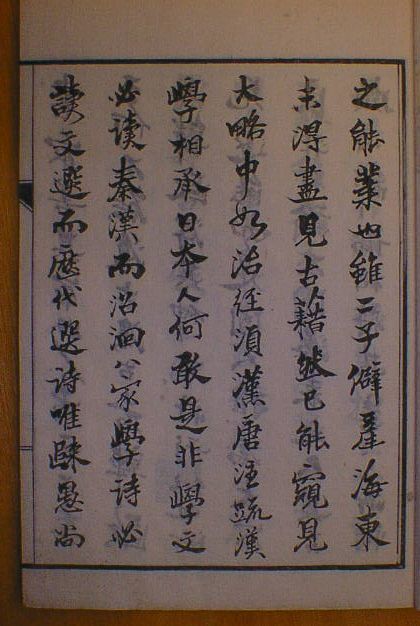 之能業也雖二子僻產海東
未得盡見古藉然已能窺見
大略中如治經須漢唐注疏漢
學相承日本人何敢是非學文
必讀秦漢而沿洄八家學詩必
讀文選而歷代選詩唯愚尚